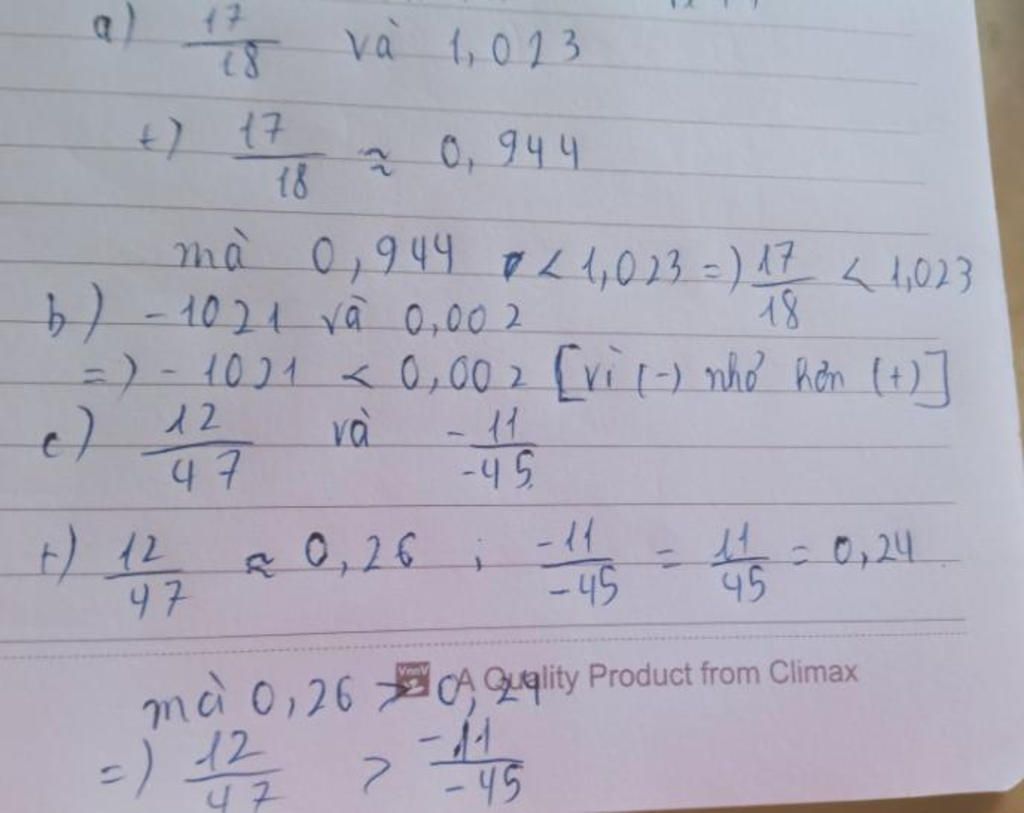 a) 17/18 và 1,023
+) 17/18 ≈ 0,944
mà 0,944 < 1,023 =) 17/18 < 1,023
b) -1021 và 0,002
=) -1021 < 0,002 [vì (-) nhỏ hơn (+)]
c) 12/47 và -11/-45
+) 12/47 ≈ 0,26 ; -11/-45 = 11/45 = 0,24
A Quality Product from Climax
mà 0,26 > 0,24
=) 12/47 > -11/-45